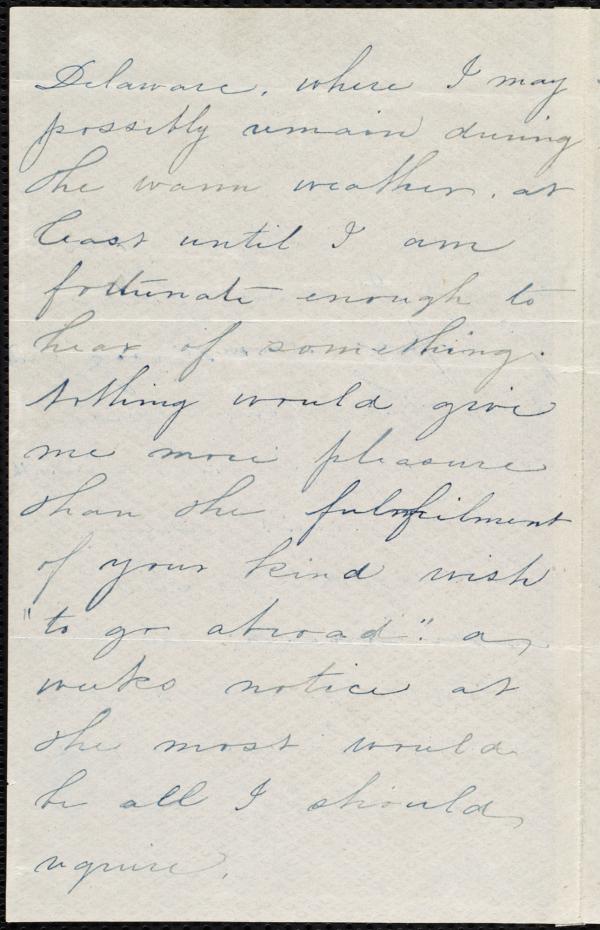 Delaware, where I may
possibly remain during
the warm weather, at
least until I am
fortunate enough to
hear of something.
Nothing would give
me more pleasure
than the fulfilment
of your kind wish
"to go abroad". a
weeks notice at
the most would
be all I should
require.